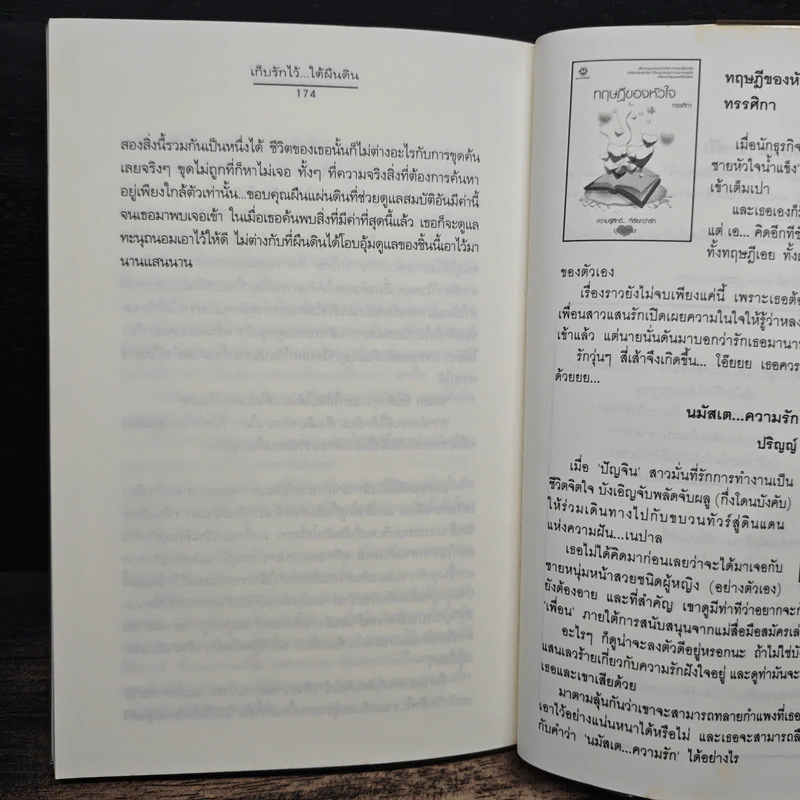 เก็บรักไว้...ใต้ผืนดิน
174
สองสิ่งนี้รวมกันเป็นหนึ่งได้ ชีวิตของเธอนั้นก็ไม่ต่างอะไรกับการขุดค้น
เลยจริงๆ ขุดไม่ถูกที่ก็หาไม่เจอ ทั้งๆ ที่ความจริงสิ่งที่ต้องการค้นหา
อยู่เพียงใกล้ตัวเท่านั้น...ขอบคุณผืนแผ่นดินที่ช่วยดูแลสมบัติอันมีค่านี้
จนเธอมาพบเจอเข้า ในเมื่อเธอค้นพบสิ่งที่มีค่าที่สุดนี้แล้ว เธอก็จะดูแล
ทะนุถนอมเอาไว้ให้ดี ไม่ต่างกับที่ผืนดินได้โอบอุ้มดูแลของชิ้นนี้เอาไว้มา
นานแสนนาน
ทฤษฎีของหัวใจ
ทรรศิกา
ความรู้สึกดี... ที่เรียกว่ารัก
ทฤษฎีของหั
ทรรศิกา
เมื่อนักธุรกิจ
ชายหัวใจน้ำแข็ง'
เข้าเต็มเปา
และเธอเองก็มี
แต่ เอ... คิดอีกที
ทั้งทฤษฎีเอย ทั้ง
ของตัวเอง
เรื่องราวยังไม่จบเพียงแค่นี้ เพราะเธอต้อ
เพื่อนสาวแสนรักเปิดเผยความในใจให้รู้ว่าหลง
เข้าแล้ว แต่นายนั่นดันมาบอกว่ารักเธอมานาน
รักวุ่นๆ สี่เส้าจึงเกิดขึ้น... โอ๊ยยย เธอควร
ด้วยยย...
นมัสเต...ความรัก
ปริญญ์
เมื่อ 'ปัญจิน' สาวมั่นที่รักการทำงานเป็น
ชีวิตจิตใจ บังเอิญจับพลัดจับผลู (กึ่งโดนบังคับ)
ให้ร่วมเดินทางไปกับขบวนทัวร์สู่ดินแดน
แห่งความฝัน...เนปาล
เธอไม่ได้คิดมาก่อนเลยว่าจะได้มาเจอกับ
ชายหนุ่มหน้าสวยชนิดผู้หญิง (อย่างตัวเอง)
ยังต้องอาย และที่สำคัญ เขาดูมีท่าทีว่าอยากจะก
'เพื่อน' ภายใต้การสนับสนุนจากแม่สื่อมือสมัครเล่
อะไรๆ ก็ดูน่าจะลงตัวดีอยู่หรอกนะ ถ้าไม่ใช่บั
แสนเลวร้ายเกี่ยวกับความรักฝังใจอยู่ และดูท่ามันจะ
เธอและเขาเสียด้วย
มาตามลุ้นกันว่าเขาจะสามารถทลายกำแพงที่เธอ
เอาไว้อย่างแน่นหนาได้หรือไม่ และเธอจะสามารถลื
กับคำว่า 'นมัสเต...ความรัก' ได้อย่างไร